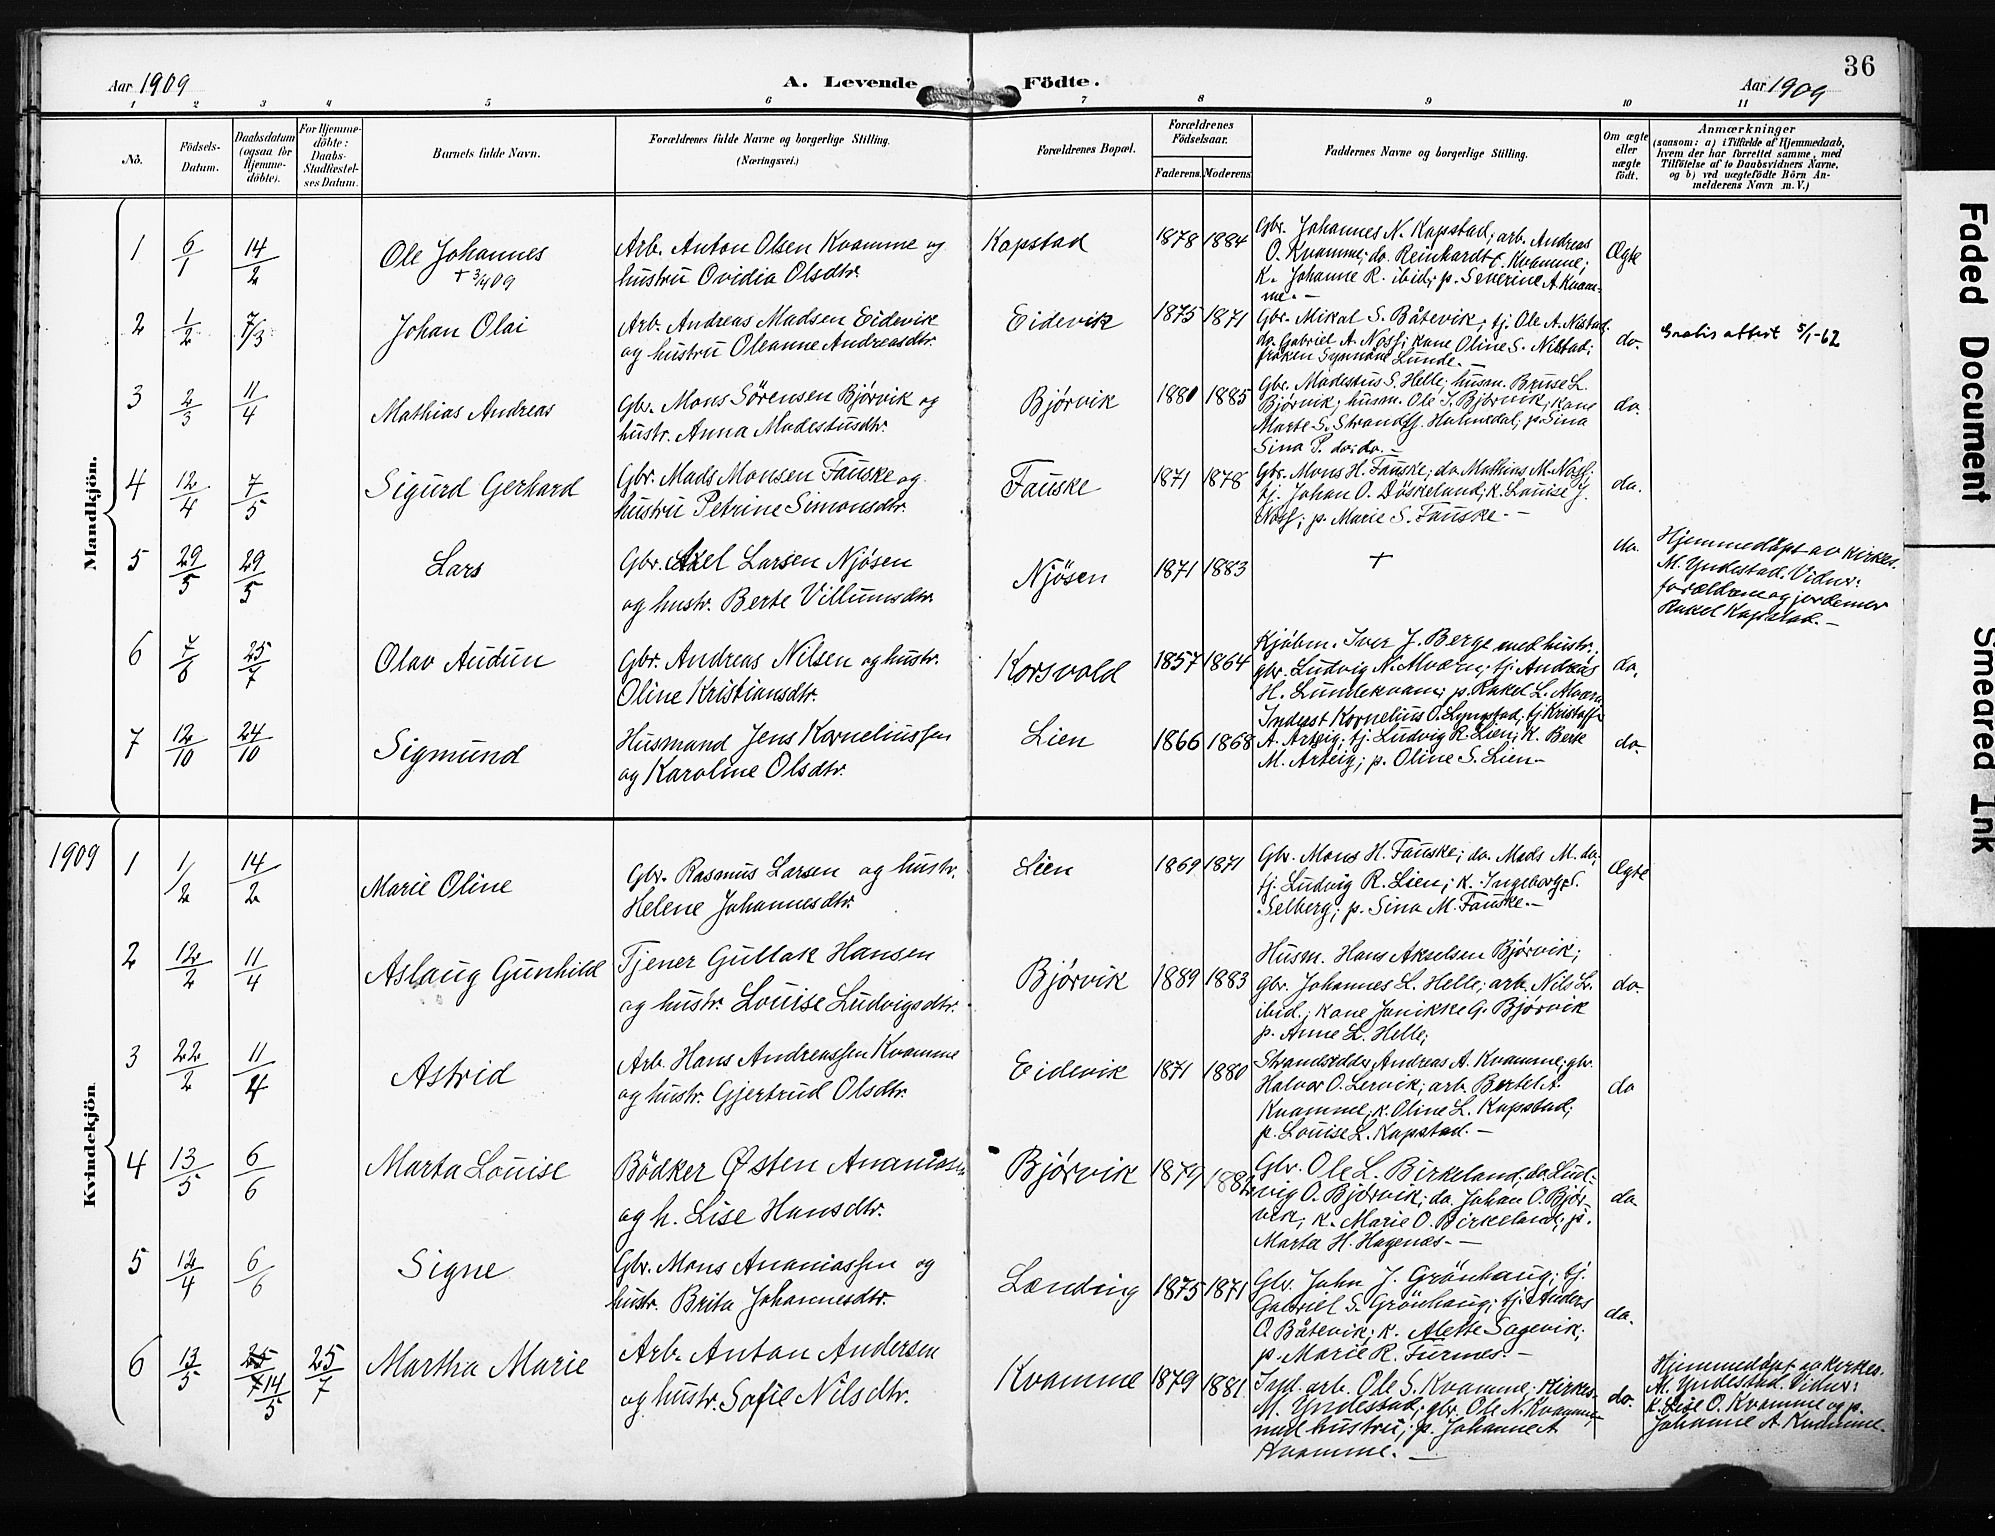 36
Aar 1909
A. Levende Födte.
Aar 1909
1 2 3 4 5 6 7 8 9 10 11
No.
Födsels-
Datum.
Daabsdatum
(ogsaa for
Hjemme-
döbte).
For Hjemme-
döbte:
Daabs-
Stadfæstel-
ses Datum.
Barnets fulde Navn.
Forældrenes fulde Navne og borgerlige Stilling.
(Næringsvei.)
Forældrenes Bopæl.
Forældrenes
Födselsaar.
Faderens. Moderens
Faddernes Navne og borgerlige Stilling.
Om ægte
eller
uægte
födt.
Anmærkninger
(saasom: a) i Tilfælde af Hjemmedaab,
hvem der har forrettet samme, med
Tilföielse af to Daabsvidners Navne,
og b) ved uægtefödte Börn An-
melderens Navn m. V.)
Mandkjön.
1 6/1 14/2 Ole Johannes
+ 3/4 09
Arb. Anton Olsen Kvamme og
hustru Ovidia Olsdtr.
Kapstad 1878 1884
Gbr. Johannes N. Kapstad; arb. Andreas
O. Kvamme; do. Reinhardt C. Kvamme;
K. Johanne R. ibid; p. Severine A Kvam-
me. -
Ægte
2 1/2 7/3 Johan Olai
Arb. Andreas Madsen Eidevik
og hustru Oleanne Andreasdtr.
Eidevik 1875 1871
Gbr. Mikal S. Båtevik; tj. Ole A. Nistad.
do. Gabriel A. Noss; kone Oline S. Nistad;
frøken Synnöve Lunde.
do. Gratis attest 5/1-62
3 2/3 11/4 Mathias Andreas
Gbr. Mons Sörensen Bjørvik og
hustr. Anna Modestusdtr.
Bjørvik 1880 1885
Gbr. Modestus S. Helle; husm. Bruse L.
Bjørvik; husm. Ole J. Bjørvik; kone
Marte S. Strand, Holmedal; p. Sina
Sina P. do: do. -
do.
4 12/4 7/5 Sigurd Gerhard
Gbr. Mads Monsen Fauske og
hustru Petrine Simonsdtr.
Fauske 1871 1878
Gbr. Mons H. Fauske; do. Mathias M. Noss;
tj. Johan O. Döskeland; k. Louise J.
Noss; p. Marie S. Fauske. -
do.
5 29/5 29/5 Lars
Gbr. Axel Larsen Njøsen
og hustr. Berte Villumsdtr.
Njøsen 1871 1883 + do.
Hjemmedöpt av kirkes.
M. Yndestad. Vidner:
forældrene og jordemor
Rakel Kapstad. -
6 7/6 25/7 Olav Audun
Gbr. Andreas Nilsen og hustr.
Oline Kristiansdtr.
Korsvold 1857 1864
Kjöbm. Iver J. Berge med hustr.;
gbr. Ludvig N. Alværn; tj. Andreas
H. Lundekvam; p. Rakel L. Alværn
do.
7 12/10 24/10 Sigmund
Husmand Jens Korneliussen
og Karoline Olsdtr.
Lien 1866 1868
Inderst Kornelius O. Lyngstad; tj Kristoffer
A. Arteig; tj. Ludvig R. Lien; K. Berte
M. Arteig; p. Oline S. Lien -
do.
1909
Kvindekjön
1 1/2 14/2 Marie Oline
Gbr. Rasmus Larsen og hustr.
Helene Johannesdtr.
Lien 1869 1871
Gbr. Mons H. Fauske; do. Mads M. do.
tj. Ludvig R. Lien; k. Ingeborg S.
Selberg; p. Sina M. Fauske. -
Ægte
2 12/2 11/4 Aslaug Gunhild
Tjener Gullak Hansen
og hustr. Louise Ludvigsdtr.
Bjørvik 1889 1883
Husm. Hans Akselsen Bjørvik;
gbr. Johannes L. Helle; arb. Nils L.
ibid.; kone Janikke G. Bjørvik
p. Anne L. Helle;
do.
3 22/2 11/4 Astrid
Arb. Hans Andreassen Kvamme
og hustr. Gjertrud Olsdtr.
Eidevik 1871 1880
Strandsidder Andreas A. Kvamme; gbr.
Halvor O. Lervik; arb. Bertel A.
Kvamme; k. Oline L. Kapstad;
p. Louise L. Kapstad. -
do
4 13/5 6/6 Marta Louise
Bödker Østen Ananiasen
og h. Lise Hansdtr.
Bjørvik 1879
Gbr. Ole L. Birkeland; do. Lud-
vig O. Bjørvik; do. Johan O. Bjør-
vik; k. Marie O. Birkeland; p.
Marta H. Hagenæs. -
do.
5 12/4 6/6 Signe
Gbr. Mons Ananiassen og
hustr. Brita Johannesdtr.
Lending 1875 1871
Gbr. John J. Grönhaug; tj.
Gabriel S. Grönhaug; tj. Anders
O. Båtevik; k. Alette Sagevik;
p. Marie R. Furnes. -
do.
6 13/5 25/7 14/5 25/7 Martha Marie
Arb. Anton Andersen
og hustr. Sofie Nilsdtr.
Kvamme 1879 1881
Ind. arb. Ole S. Kvamme; kirkes.
M. Yndestad; gbr. Ole N. Kvamme
med hustru; p. Johanne A
Kvamme. -
do.
Hjemmedöpt av kirkes.
M. Yndestad. Vidner:
K. Lise O. Kvamme og p.
Johanne A Kvamme.
Faded Document
Smeared Ink